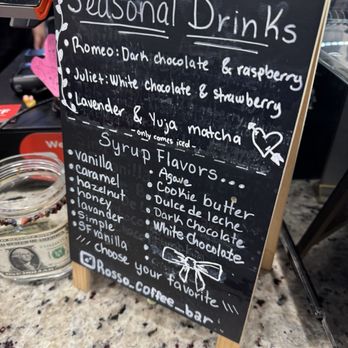 Seasonal Drinks
Romeo: Dark chocolate & raspberry
Juliet: White chocolate & strawberry
Lavender & Yuja matcha
- only comes iced -
Syrup Flavors...
vanilla
caramel
hazelnut
honey
lavander
simple
gf vanilla
Agave
Cookie butter
Dulce de leche
Dark chocolate
White chocolate
Choose your favorite
Rosso_coffee_bar
We